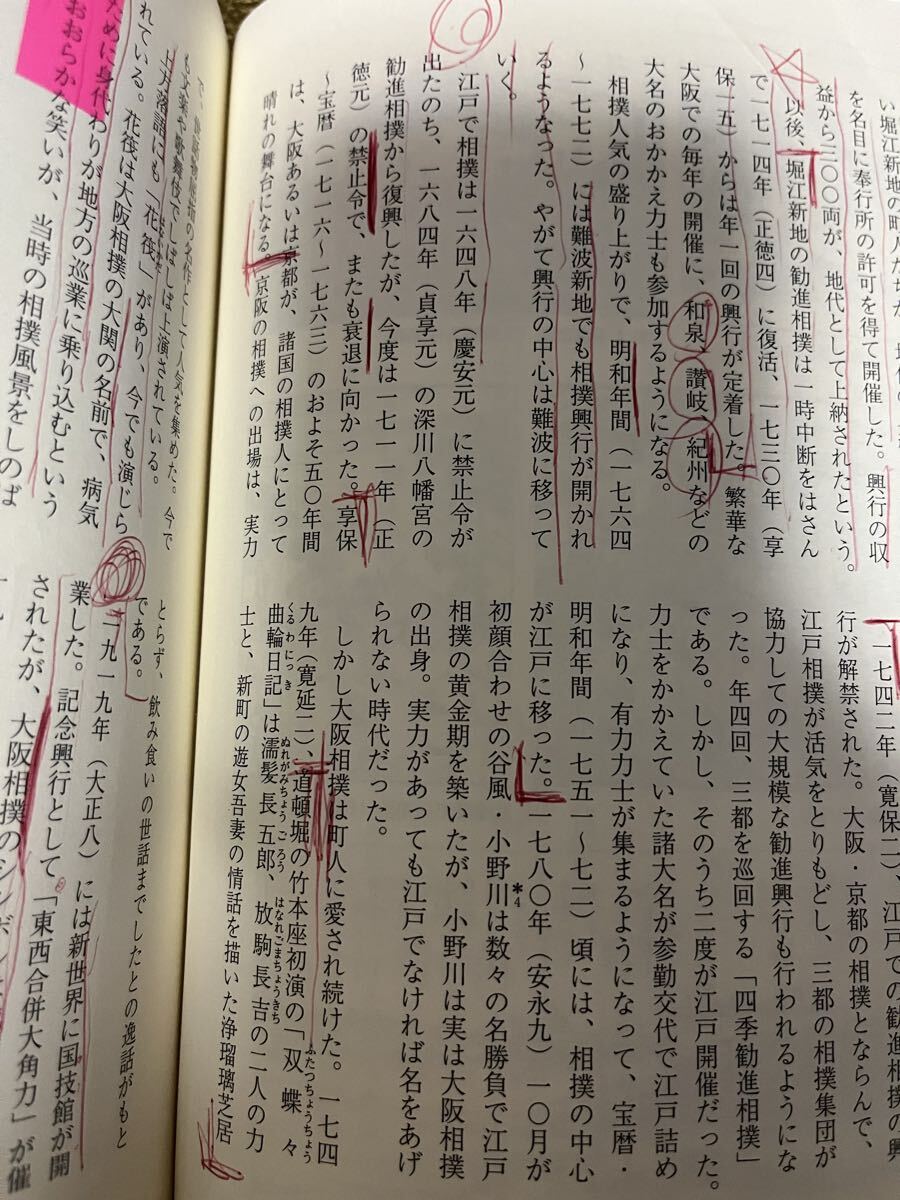 を名目に奉行所の許可を得て開催した。興行の収
益から三〇〇両が、地代として上納されたという。
以後、堀江新地の勧進相撲は一時中断をはさん
で一七一四年（正徳四）に復活、一七三〇年（享
保一五）からは年一回の興行が定着した。繁華な
大阪での毎年の開催に、和泉、讃岐、紀州などの
大名のおかかえ力士も参加するようになる。
相撲人気の盛り上がりで、明和年間（一七六四
〜一七七二）には難波新地でも相撲興行が開かれ
るようなった。やがて興行の中心は難波に移って
いく。
江戸で相撲は一六四八年（慶安元）に禁止令が
出たのち、一六八四年（貞享元）の深川八幡宮の
勧進相撲から復興したが、今度は一七一一年（正
徳元）の禁止令で、またも衰退に向かった。享保
〜宝暦（一七一六〜一七六三）のおよそ五〇年間
は、大阪あるいは京都が、諸国の相撲人にとって
晴れの舞台になる。京阪の相撲への出場は、実力
一七四二年（寛保二）、江戸での勧進相撲の興
行が解禁された。大阪・京都の相撲とならんで、
江戸相撲が活気をとりもどし、三都の相撲集団が
協力しての大規模な勧進興行も行われるようにな
った。年四回、三都を巡回する「四季勧進相撲」
である。しかし、そのうち二度が江戸開催だった。
力士をかかえていた諸大名が参勤交代で江戸詰め
になり、有力力士が集まるようになって、宝暦・
明和年間（一七五一〜七二）頃には、相撲の中心
が江戸に移った。一七八〇年（安永九）一〇月が
初顔合わせの谷風・小野川*4は数々の名勝負で江戸
相撲の黄金期を築いたが、小野川は実は大阪相撲
の出身。実力があっても江戸でなければ名をあげ
られない時代だった。
しかし大阪相撲は町人に愛され続けた。一七四
九年（寛延二）、道頓堀の竹本座初演の「双蝶々ふたつちょうちょう
曲輪日記くるわにっき」は濡髪長五郎ぬれがみちょうごろう、放駒長吉はなれごまちょうきちの二人の力
士と、新町の遊女吾妻の情話を描いた浄瑠璃芝居
も文楽や歌舞伎でしばしば上演されている。
上方落語にも「花筏はないかだ」があり、今でも演じら
れている。花筏は大阪相撲の大関の名前で、病気
ために身代わりが地方の巡業に乗り込むという
おおらかな笑いが、当時の相撲風景をしのば
とらず、飲み食いの世話までしたとの逸話がもと
である。
一九一九年（大正八）には新世界に国技館が開
業した。記念興行として「東西合併大角力」が催
されたが、大阪相撲のシンボ